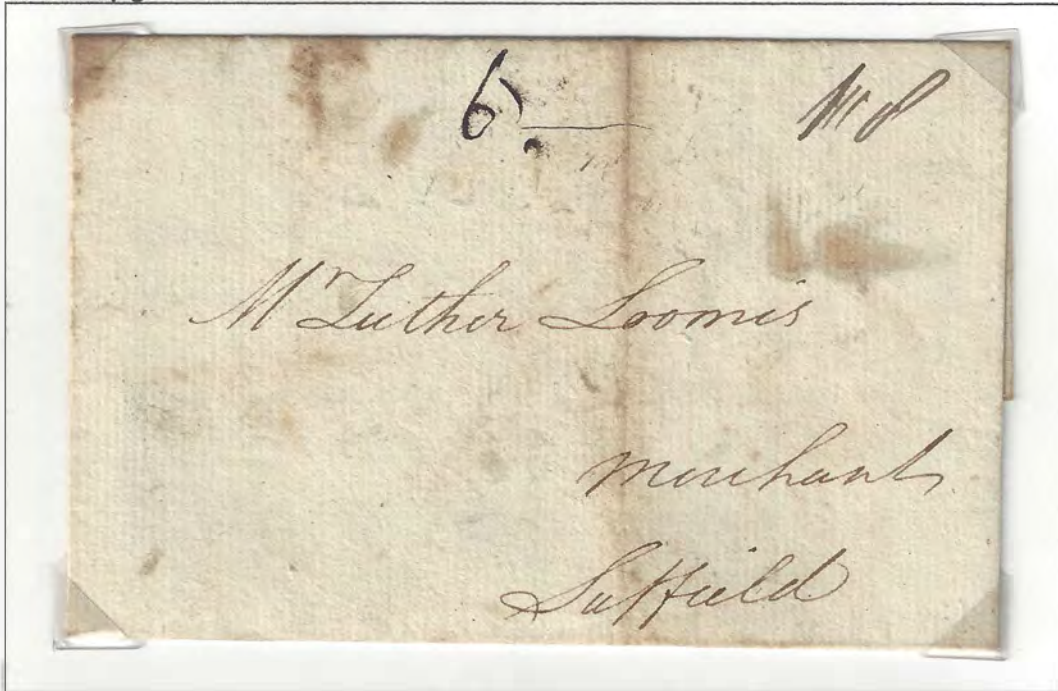 6
Mr Luther Loomis
merchant
Suffield